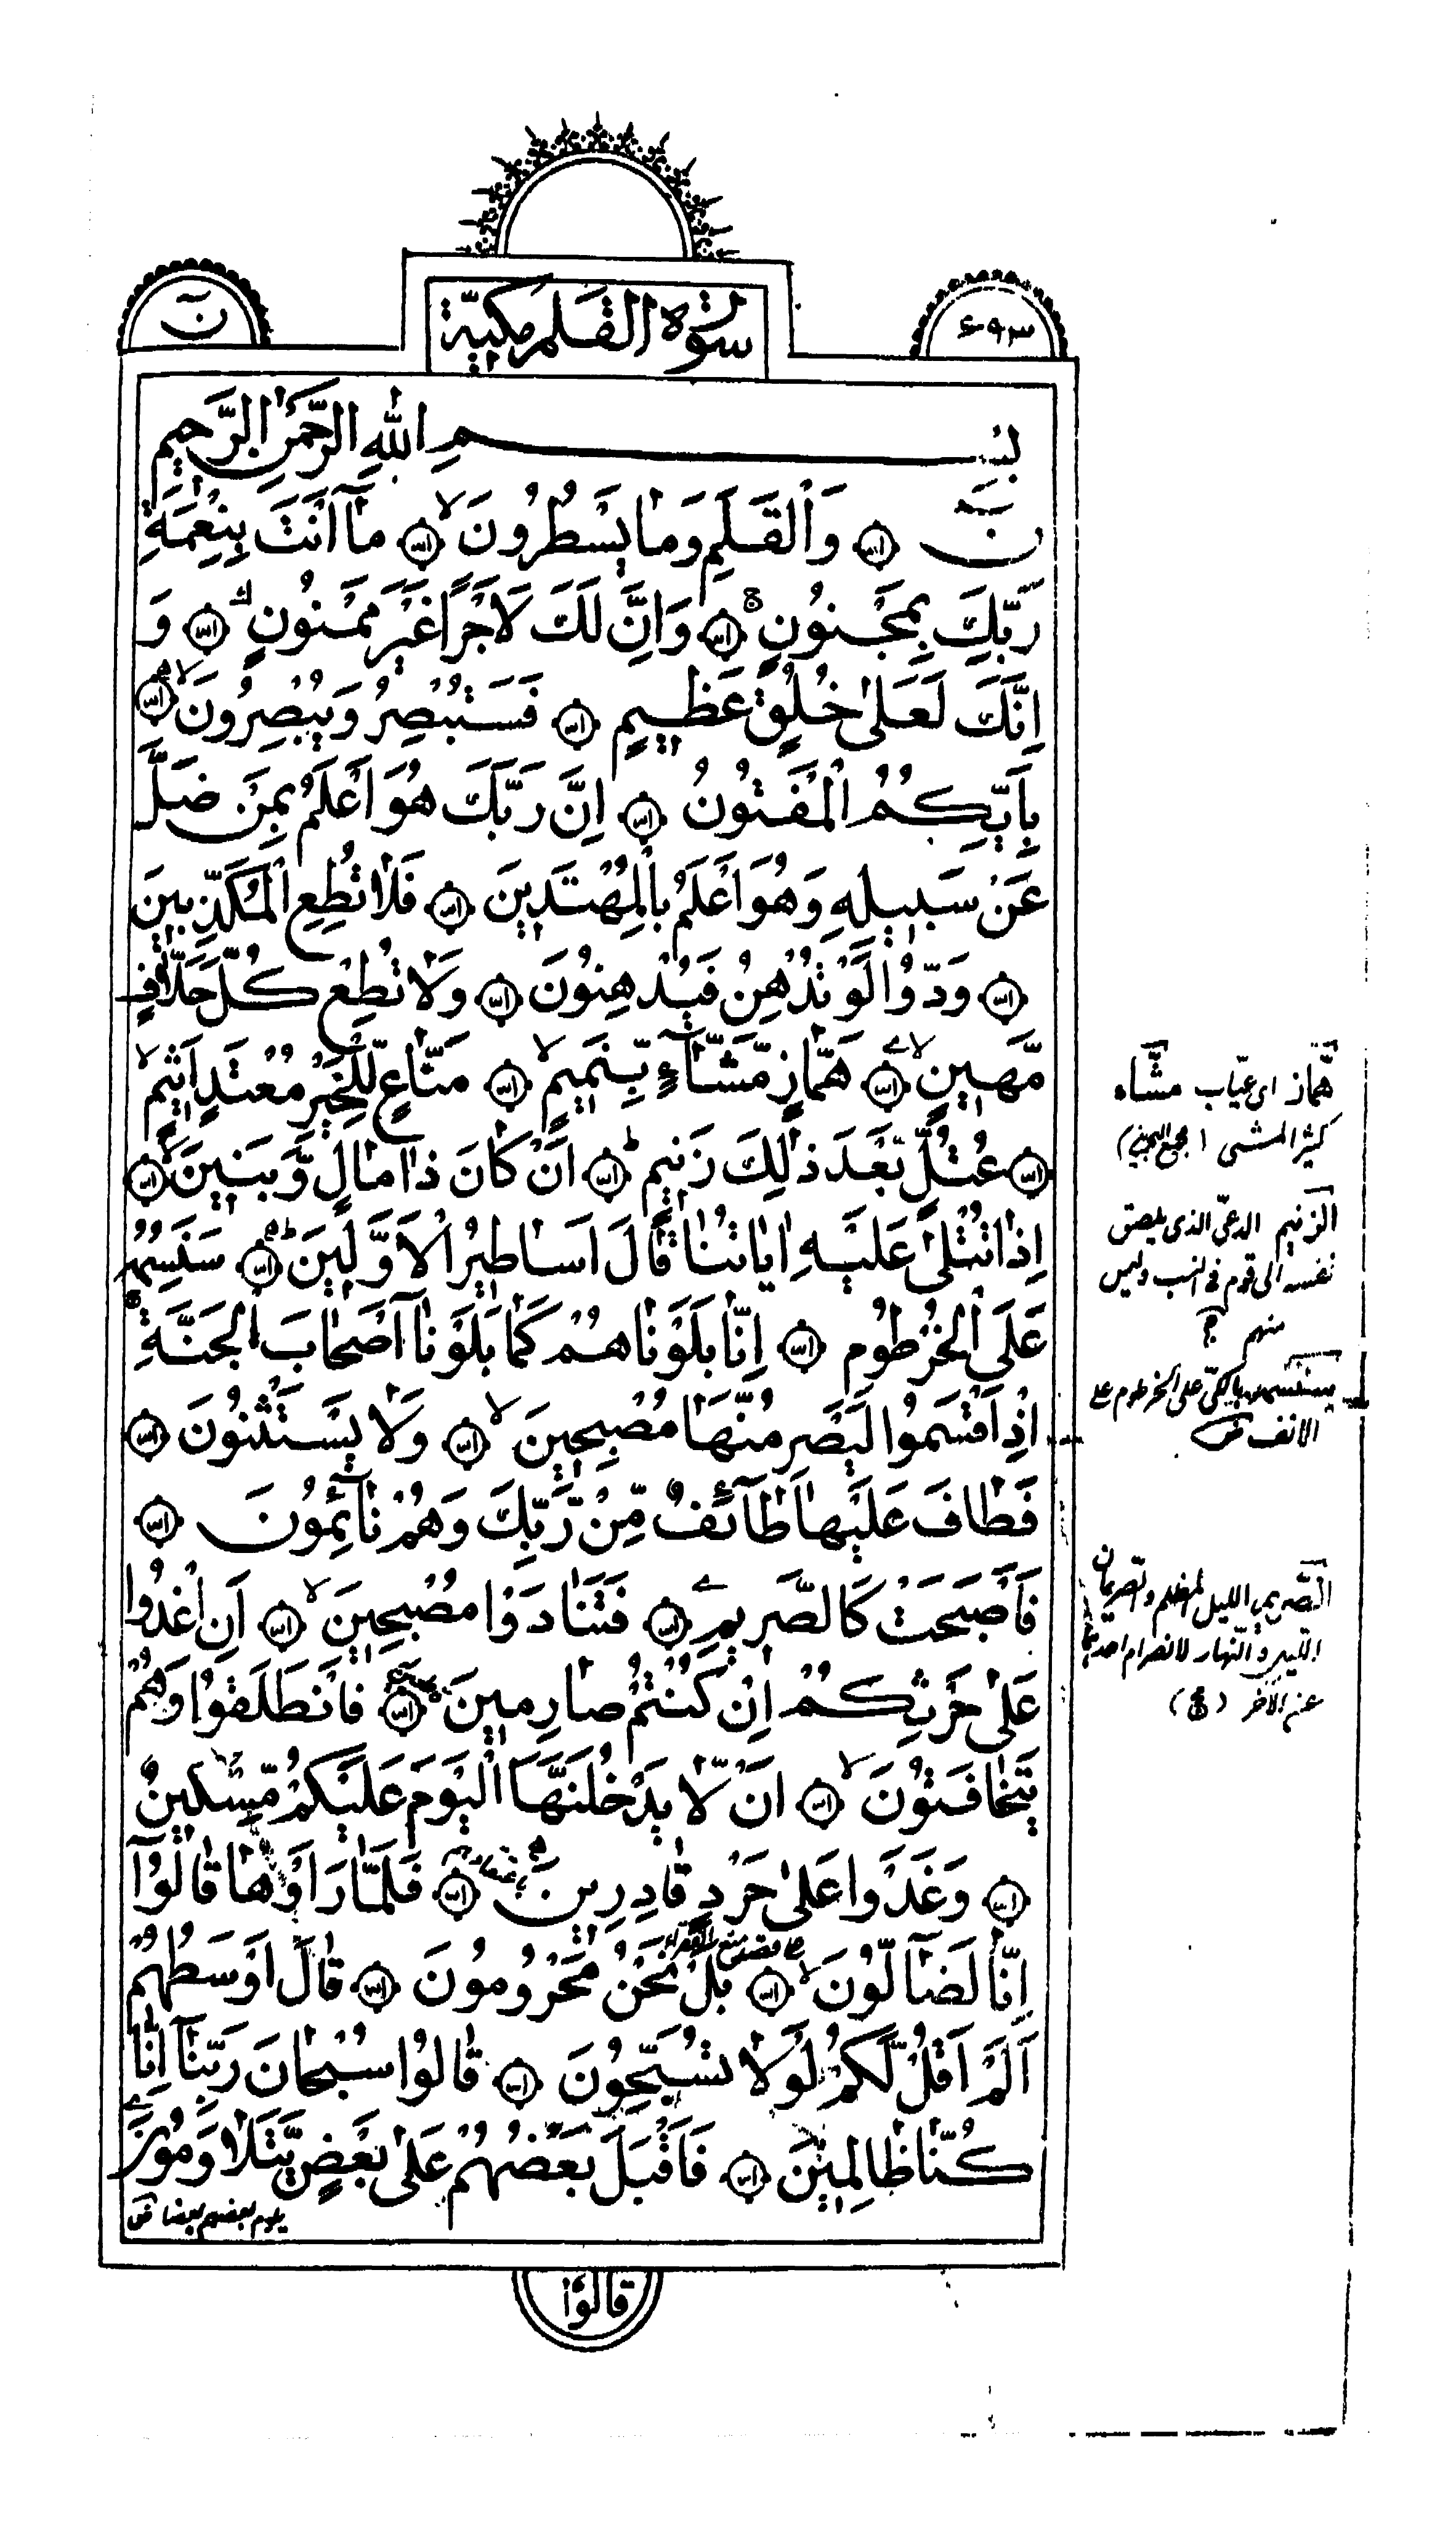 ن
سُورَةُ القَلَم مَكِيَّة
٤٩٣
بِسْمِ اللهِ الرَّحْمٰنِ الرَّحِيمِ
نۤ وَالْقَلَمِ وَمَا يَسْطُرُونَ مَآ اَنْتَ بِنِعْمَةِ
رَبِّكَ بِمَجْنُونٍ وَاِنَّ لَكَ لَاَجْرًا غَيْرَ مَمْنُونٍ وَ
اِنَّكَ لَعَلىٰ خُلُقٍ عَظِيمٍ فَسَتُبْصِرُ وَيُبْصِرُونَ
بِاَيِّكُمُ الْمَفْتُونُ اِنَّ رَبَّكَ هُوَ اَعْلَمُ بِمَنْ ضَلَّ
عَنْ سَبِيلِهِ وَهُوَ اَعْلَمُ بِالْمُهْتَدِينَ فَلَا تُطِعِ الْمُكَذِّبِينَ
وَدُّوا لَوْ تُدْهِنُ فَيُدْهِنُونَ وَلَا تُطِعْ كُلَّ حَلَّافٍ
مَّهِينٍ هَمَّازٍ مَّشَّآءٍ بِّنَمِيمٍ مَنَّاعٍ لِّلْخَيْرِ مُعْتَدٍ اَثِيمٍ
عُتُلٍّ بَّعْدَ ذٰلِكَ زَنِيمٍ اَنْ كَانَ ذَا مَالٍ وَّبَنِينَ
اِذَا تُتْلىٰ عَلَيْهِ اٰيَاتُنَا قَالَ اَسَاطِيرُ الْاَوَّلِينَ سَنَسِمُهُ
عَلَى الْخُرْطُومِ اِنَّا بَلَوْنَاهُمْ كَمَا بَلَوْنَآ اَصْحَابَ الْجَنَّةِ
اِذْ اَقْسَمُوا لَيَصْرِمُنَّهَا مُصْبِحِينَ وَلَا يَسْتَثْنُونَ
فَطَافَ عَلَيْهَا طَآئِفٌ مِّنْ رَّبِّكَ وَهُمْ نَآئِمُونَ
فَاَصْبَحَتْ كَالصَّرِيمِ فَتَنَادَوْا مُصْبِحِينَ اَنِ اغْدُوا
عَلىٰ حَرْثِكُمْ اِنْ كُنْتُمْ صَارِمِينَ فَانْطَلَقُوا وَهُمْ
يَتَخَافَتُونَ اَنْ لَّا يَدْخُلَنَّهَا الْيَوْمَ عَلَيْكُمْ مِّسْكِينٌ
وَغَدَوْا عَلىٰ حَرْدٍ قَادِرِينَ فَلَمَّا رَاَوْهَا قَالُوٓا
اِنَّا لَضَآلُّونَ بَلْ نَحْنُ مَحْرُومُونَ قَالَ اَوْسَطُهُمْ
اَلَمْ اَقُلْ لَّكُمْ لَوْلَا تُسَبِّحُونَ قَالُوا سُبْحَانَ رَبِّنَآ اِنَّا
كُنَّا ظَالِمِينَ فَاَقْبَلَ بَعْضُهُمْ عَلىٰ بَعْضٍ يَّتَلَاوَمُونَ
يلوم بعضهم بعضا
قَالُوا
هَمَّاز اى عيّاب مشّاء
كثير المشى (مجمع البحرين)
الزنيم الدعىّ الذى يلصق
نفسه الى قوم فى النسب وليس
منهم
بالكىّ على الخرطوم على
الانف
الصّريم الليل المظلم والصريمان
الليل والنّهار لانصرام احدهما
عن الاخر